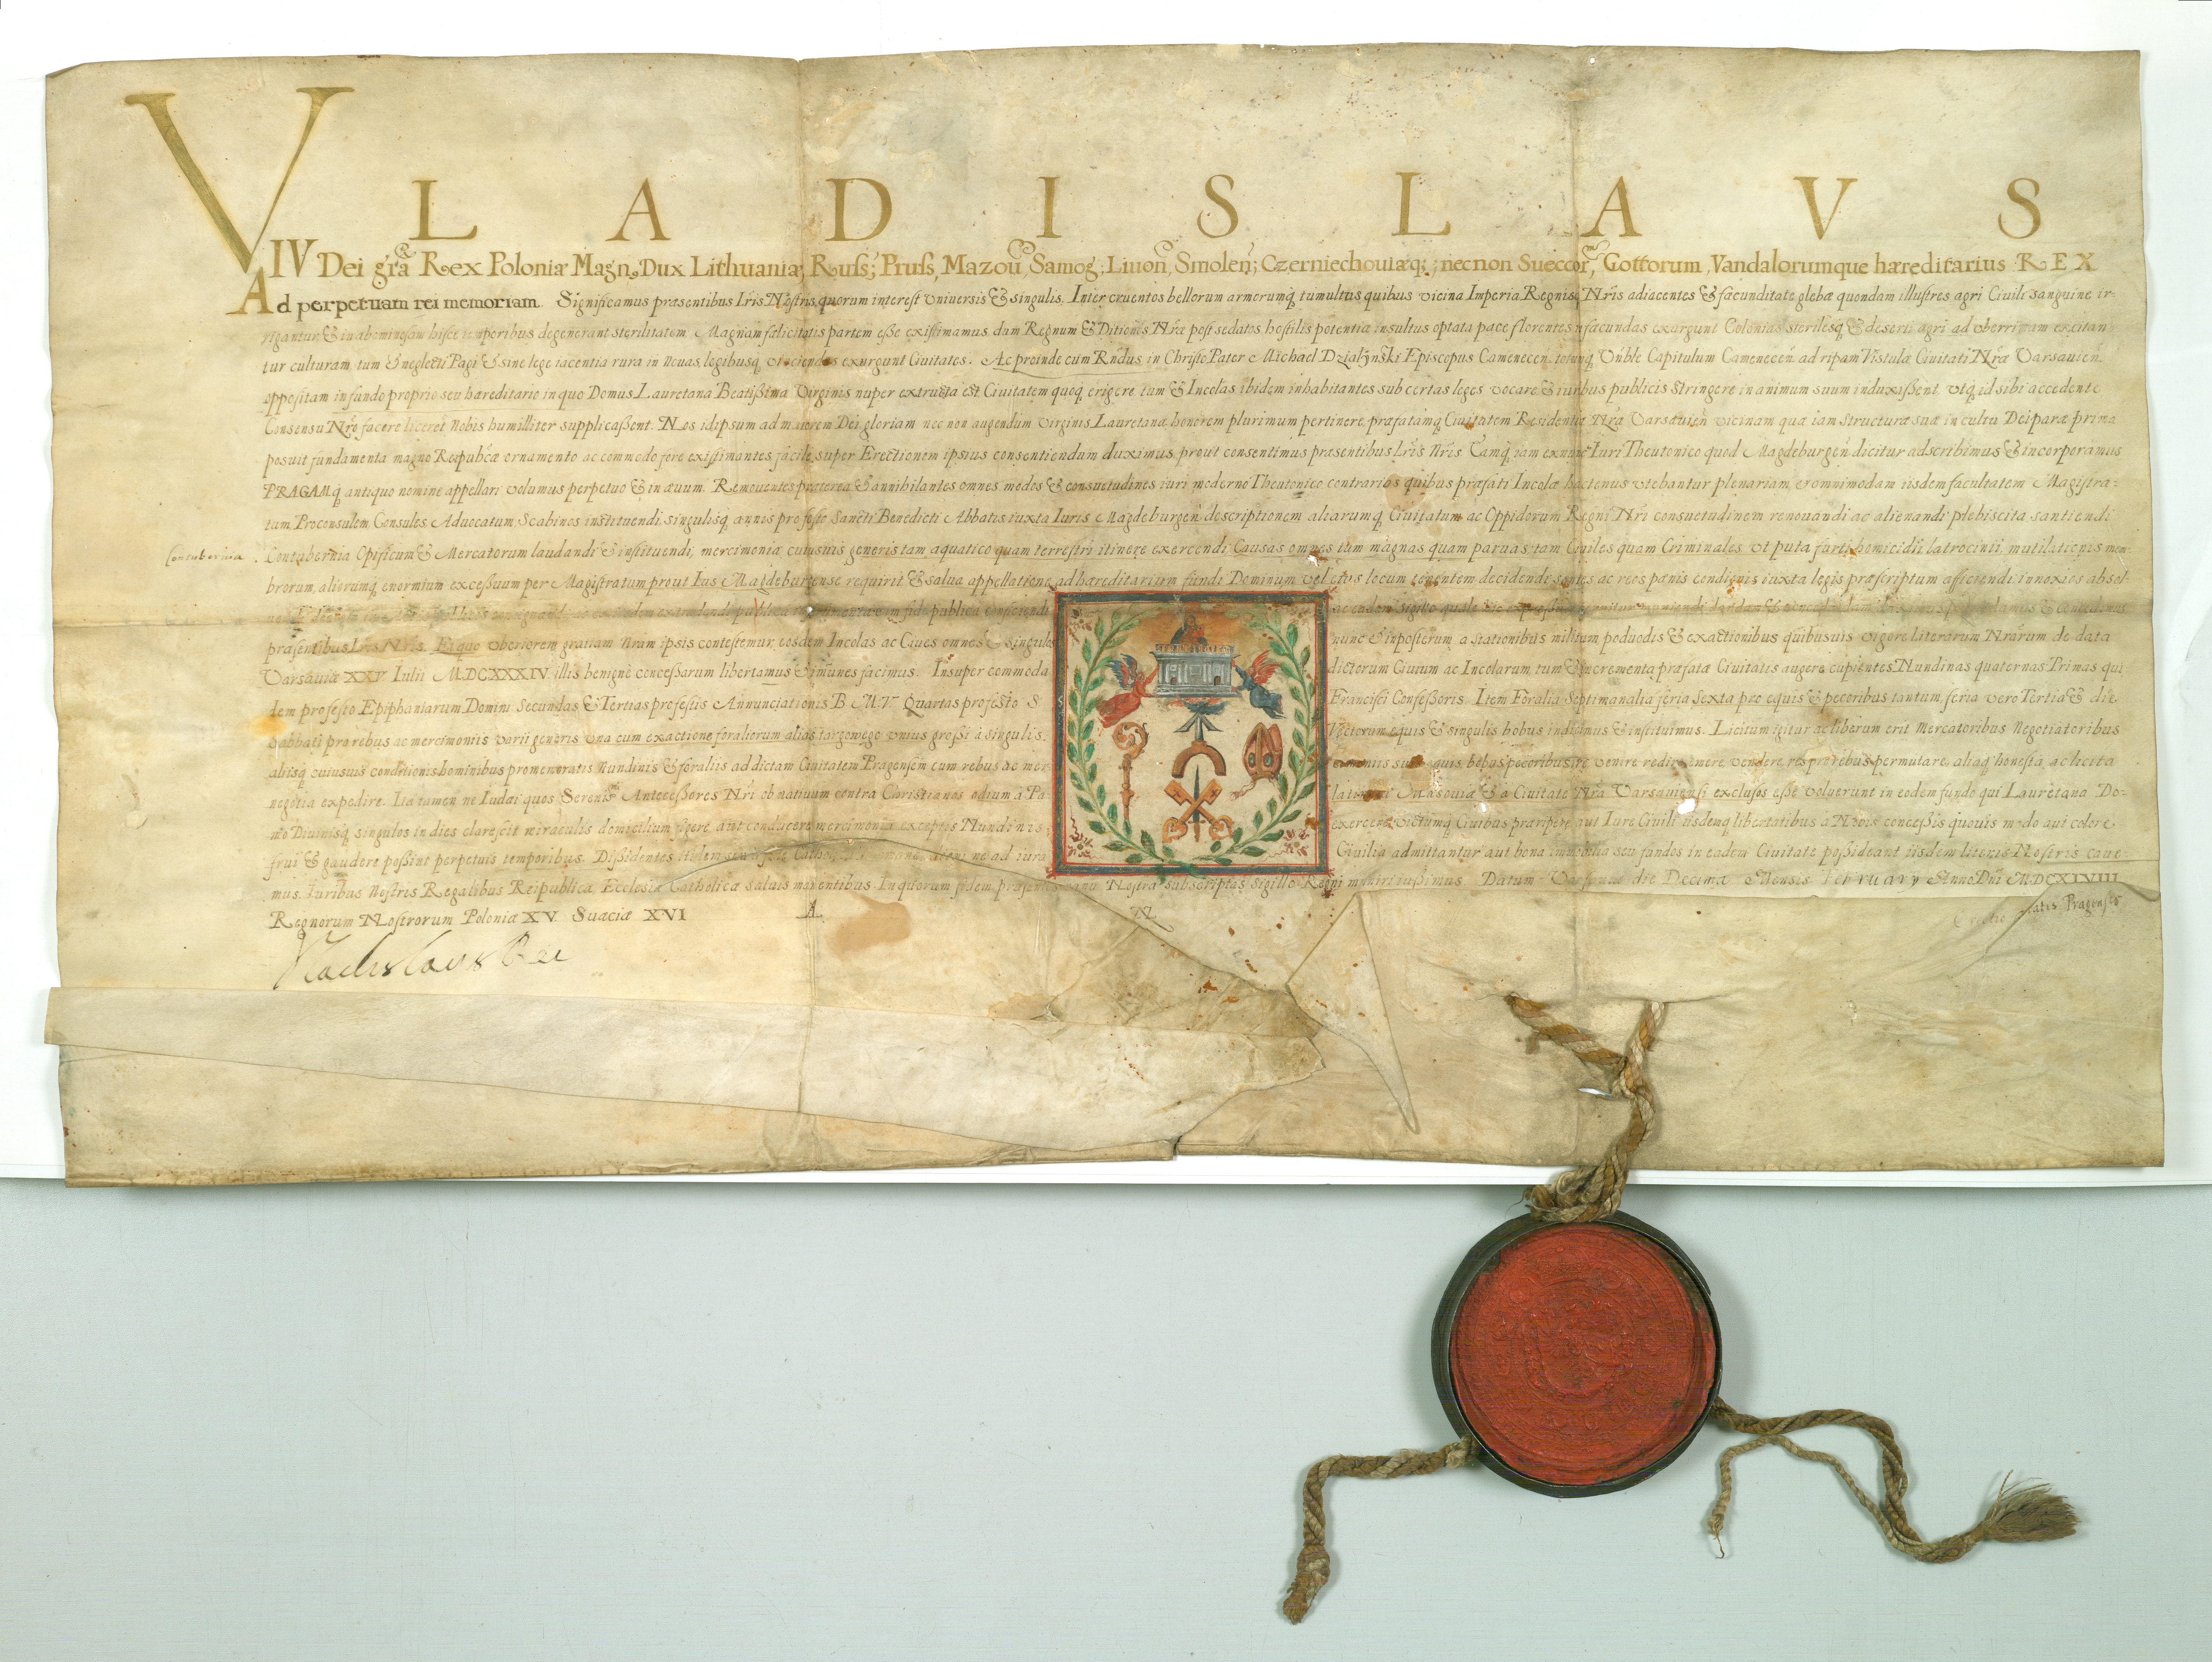 VLADISLAVS
IV Dei gr̃a Rex Poloniæ Magn, Dux Lithuaniæ, Russ; Pruss, Mazou, Samog; Liuon, Smolen; Czerniechouiæq; necnon Sueccor, Gottorum, Vandalorumque hæreditarius REX
Ad perpetuam rei memoriam. Significamus præsentibus Lris Nostris, quorum interest Vniuersis & singulis. Inter cruentos bellorum armorumq tumultus quibus vicina Imperia Regnisq Nr̃is adiacentes & fæcunditate glebæ quondam illustres agri Ciuili sanguine ir-
rigantur, & in abominosam hisce temporibus degenerant sterilitatem. Magnam fælicitatis partem esse existimamus, dum Regnum & Ditiones Nr̃æ post sedatos hostilis potentiæ insultus optata pace florentes fæcundas exurgunt Colonias sterilesq & deserti agri ad vberrimam excitan
tur culturam, tum & neglecti Pagi & sine lege iacentia rura in nouas, legibusq exurgunt Ciuitates. Ac proinde cum Rñdus in Christo Pater Michael Działÿński Episcopus Camenecen. totumq Vn̄ble Capitulum Camenecen̄ ad ripam Vistulæ Ciuitati Nr̃æ Varsauien̄
oppositam in fundo proprio seu hæreditario in quo Domus Lauretana Beatissimæ Virginis nuper extructa est Ciuitatem quoq erigere tum & Incolas ibidem inhabitantes sub certas leges vocare & iuribus publicis stringere in animum suum induxissent, vtq id sibi accedente
Consensu Nr̃o facere liceret Nobis humilliter supplicassent. Nos id ipsum ad maiorem Dei gloriam nec non augendum Virginis Lauretanæ honorem plurimum pertinere, præfatamq Ciuitatem Residentiæ Nr̃æ Varsauien̄ vicinam quæ iam structuræ suæ in cultu Deiparæ prima
posuit fundamenta magno Reipubcæ ornamento ac commodo fore existimantes facile super Erectionem ipsius consentiendum duximus, prout consentimus præsentibus Lr̃is Nr̃is. Eamq iam ex nunc Iuri Theutonico quod Magdeburgen̄ dicitur adscribimus & incorporamus
PRAGAMq antiquo nomine appellari volumus perpetuo & in æuum. Remouentes præterea & annihilantes omnes modos & consuetudines iuri moderno Theutonico contrarios quibus præfati Incolæ hactenus vtebantur plenariam, & omnimodam iisdem facultatem Magistra-
tum Proconsulem, Consules, Aduocatum, Scabinos instituendi, singulisq annis pro festo Sancti Benedicti Abbatis iuxta Iuris Magdeburgen̄ descriptionem aliarumq Ciuitatum ac Oppidorum Regni Nr̃i consuetudinem renouandi ac alienandi plebiscita santiendi
Contubernia
Contubernia Opificum & Mercatorum laudandi & instituendi, mercimonia cuiusuis generis tam aquatico quam terrestri itinere exercendi Causas omnes tam magnas quam paruas tam Ciuiles quam Criminales vt puta furti, homicidii, latrocinii, mutilationis mem-
brorum, aliorumq enormium excessuum per Magistratum prout Ius Magdeburgense requirit & salua appellatione ad hæreditarium fundi Dominum vel eius locum tenentem decidendi, sontes ac reos pænis condignis iuxta legis præscriptum afficiendi, innoxios absol-
præsentibus Lris Nr̃is. Ex quo vberiorem gratiam Nr̃am ipsis contestemur, eosdem Incolas ac Ciues omnes & singulos nunc & in posterum a stationibus militum, poduodis & exactionibus quibusuis vigore literarum Nr̃arum de data
Varsauiæ XXV Iulii MDCXXXIV illis benigne concessarum libertamus & im̃unes facimus. Insuper commoda dictorum Ciuium ac Incolarum tum & incrementa præfatæ Ciuitatis augere cupientes Nundinas quaternas Primas qui-
dem pro festo Epiphaniarum Domini Secundas & Tertias pro festis Annunciationis B M V Quartas pro festo S Francisci Confessoris. Item Foralia Septimanalia feria Sexta pro equis & pecoribus tantum, feria vero Tertia & die
Sabbati pro rebus ac mercimoniis varii generis vna cum exactione foralium alias targowego vnius grossi à singulis equis & singulis bobus indicimus & instituimus. Licitum igitur ac liberum erit Mercatoribus Negotiatoribus
aliisq cuiusuis conditionis hominibus pro memoratis Nundinis & foraliis ad dictam Ciuitatem Pragensem cum rebus ac mer suis equis, bobus pecoribus venire redire emere vendere, res pro rebus permutare, aliaq honesta ac licita
negotia expedire. Ita tamen ne Iudæi quos Serenis Antecessores Nr̃i ob natiuum contra Christianos odium à Pa latinatu Masouiæ & à Ciuitate Nr̃a Varsauiensi exclusos esse voluerunt in eodem fundo qui Lauretanæ Do-
mo Diuinisq singulos in dies clarescit miraculis domicilium figere aut conducere mercimonia exceptis Nundinis exercere victumq Ciuibus præripere, aut Iure Ciuili iisdemq libertatibus à Nobis concessis quouis modo
frui & gaudere possint perpetuis temporibus. Dissidentes itidem seu à fide Catholica Romana alieni ne ad iura Ciuilia admittantur aut bona immobilia seu fundos in eadem Ciuitate possideant iisdem literis Nostris caue-
mus. Iuribus Nostris Regalibus Reipublicæ Ecclesiæ Catholicæ saluis manentibus. In quorum fidem præsentes manu Nostra subscriptas Sigillo Regni muniri iussimus. Datum Varsauiæ die Decima Mensis February Anno Dñi MDCXLVIII
Regnorum Nostrorum Poloniæ XV Sueciæ XVI
Vladislaus Rex